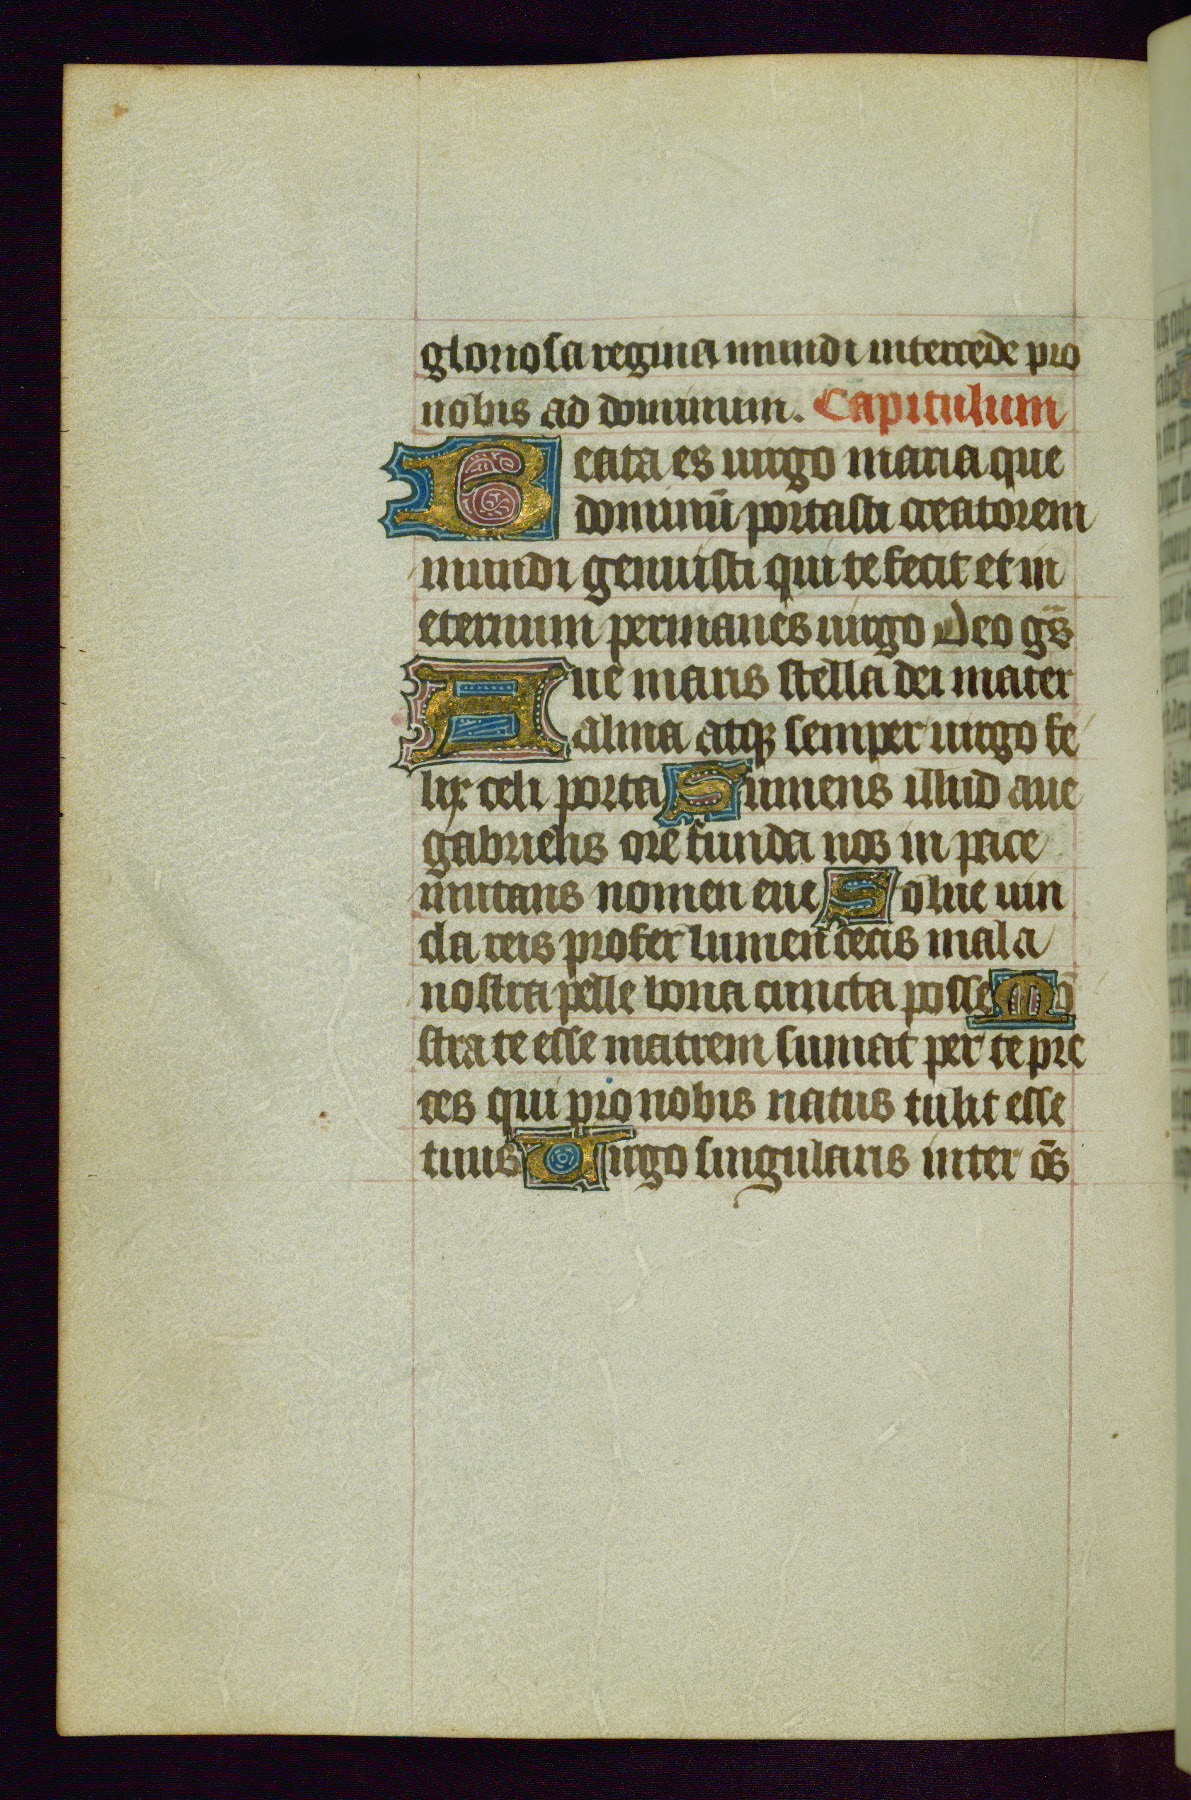 gloriosa regina mundi intercede pro
nobis ad dominum. Capitulum
Beata es uirgo maria que
dominū portasti creatorem
mundi genuisti qui te fecit et in
eternum permanes uirgo Deo gr̄s
Aue maris stella dei mater
alma atqꝫ semper uirgo fe
lix celi porta Sumens illud aue
gabrielis ore funda nos in pace
mutans nomen eue Solue uin
cla reis profer lumen cecis mala
nostra pelle bona cuncta posse Mō
stra te esse matrem sumat per te pre
ces qui pro nobis natus tulit esse
tuus Uirgo singularis inter oēs